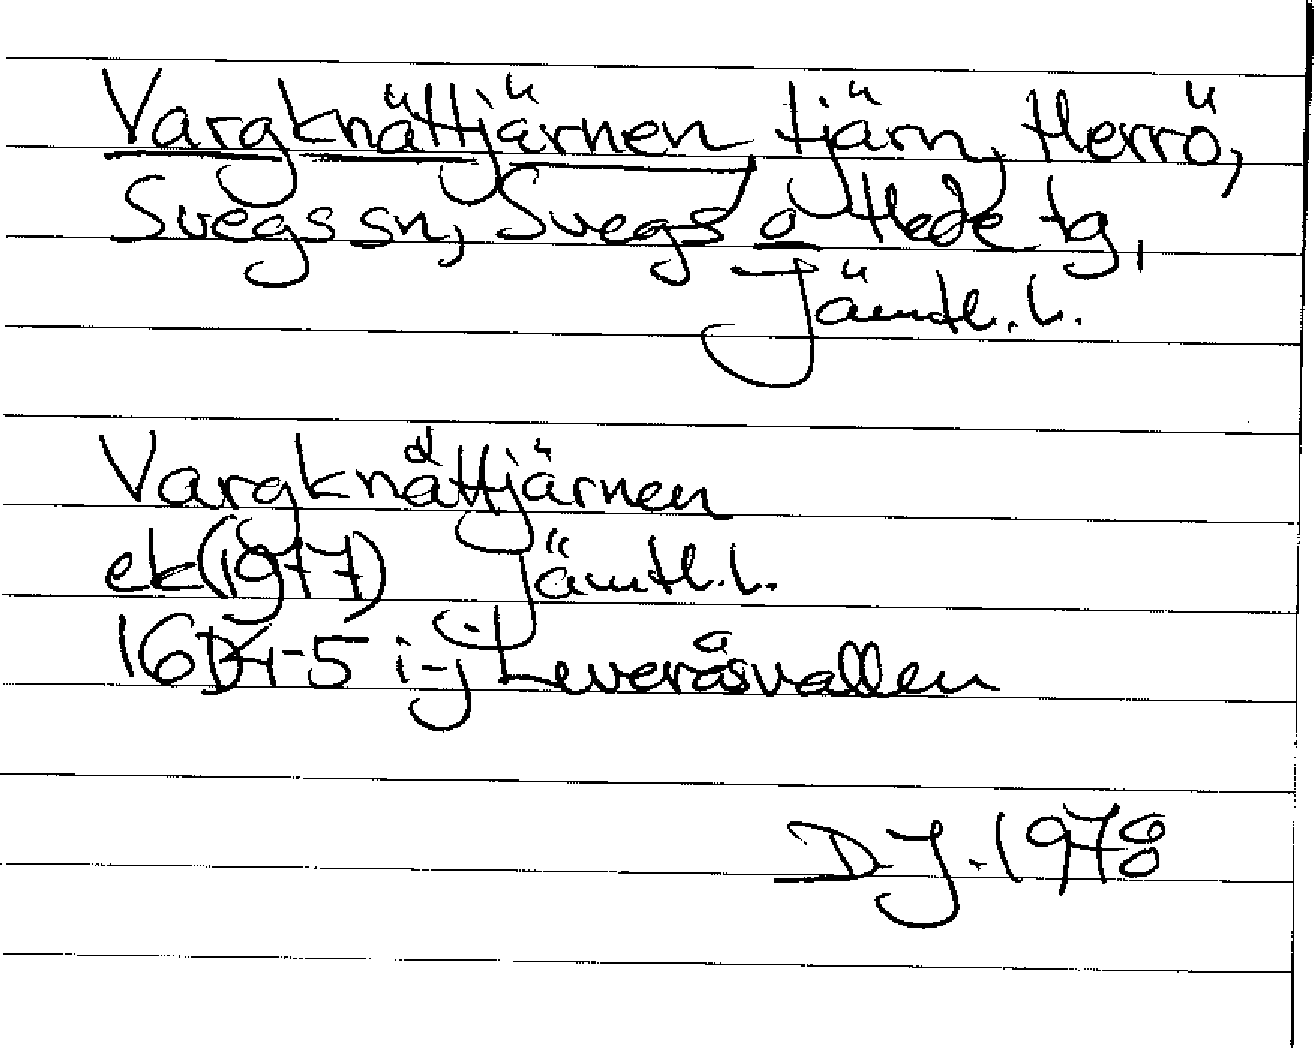 Vargknättjärnen, tjärn, Herrö,
Svegs sn, Svegs o Hede tg,
Jämtl. l.
Vargknåttjärnen
ek (1977) Jämtl. l.
16D 4-5 i-j Leveråsvallen
DJ. 1978